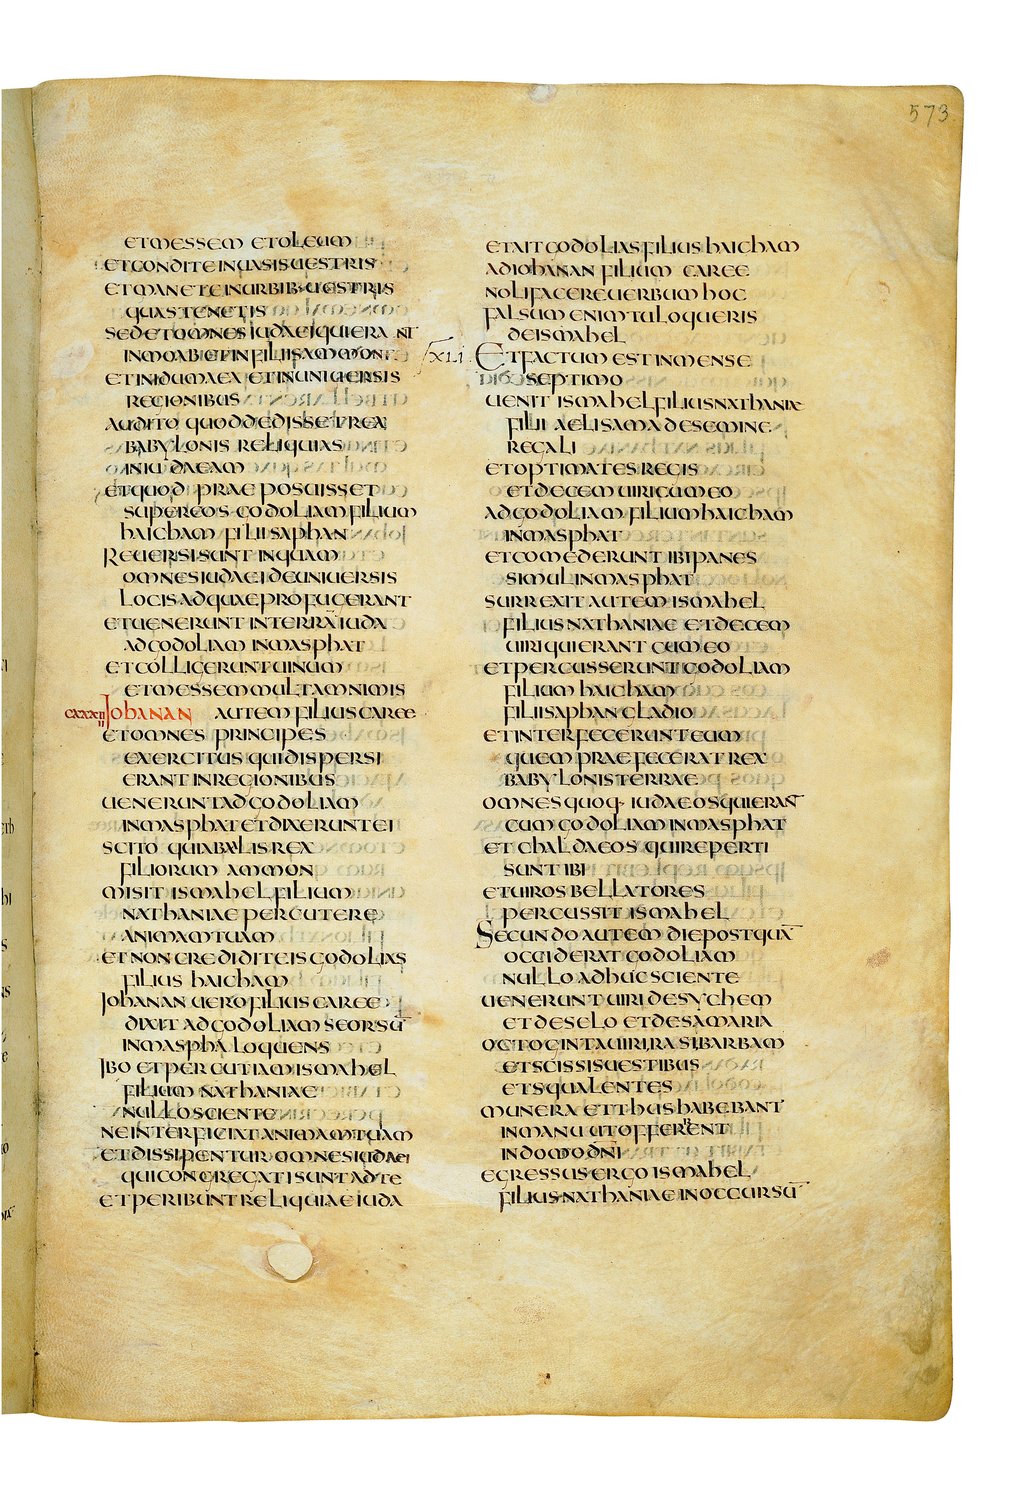 573
et messem et oleum
et condite in uasis uestris
et manete in urbib· uestris
quas tenetis
sed et omnes iudaei qui erant
in moab et in filiis ammon
et in idumaea et in uniuersis
regionibus
audito quod dedisset rex
babylonis reliquias
in iudaeam
et quod praeposuisset
super eos godoliam filium
haicham filii saphan
Reuersi sunt inquam
omnes iudaei de uniuersis
locis ad quae profugerant
et uenerunt in terrā iuda
ad godoliam in masphat
et collegerunt uinum
et messem multam nimis
cxxxii Iohanan autem filius caree
et omnes principes
exercitus qui dispersi
erant in regionibus
uenerunt ad godoliam
in masphat et dixerunt ei
scito quia baalis rex
filiorum ammon
misit ismahel filium
nathaniae percutere
animam tuam
et non credidit eis godolias
filius haicham
Iohanan uero filius caree
dixit ad godoliam seorsū
in maspha loquens
Ibo et percutiam ismahel
filium nathaniae
nullo sciente
ne interficiat animam tuam
et dissipentur omnes iudaei
qui congregati sunt ad te
et peribunt reliquiae iuda
et ait godolias filius haicham
ad iohanan filium caree
noli facere uerbum hoc
falsum enim tu loqueris
de ismahel
xli Et factum est in mense
septimo
uenit ismahel filius nathaniae
filii aelisama de semine
regali
et optimates regis
et decem uiri cum eo
ad godoliam filium haicham
in masphat
et comederunt ibi panes
simul in masphat
surrexit autem ismahel
filius nathaniae et decem
uiri qui erant cum eo
et percusserunt godoliam
filium haicham
filii saphan gladio
et interfecerunt eum
quem praefecerat rex
babylonis terrae
omnes quoq· iudaeos qui erant
cum godoliam in masphat
et chaldaeos qui reperti
sunt ibi
et uiros bellatores
percussit ismahel
Secundo autem die postquā
occiderat godoliam
nullo adhuc sciente
uenerunt uiri de sychem
et de selo et de samaria
octoginta uiri rasi barbam
et scissis uestibus
et squalentes
munera et thus habebant
in manu ut offerrent
in domo dn̄i
egressus ergo ismahel
filius nathaniae in occursū